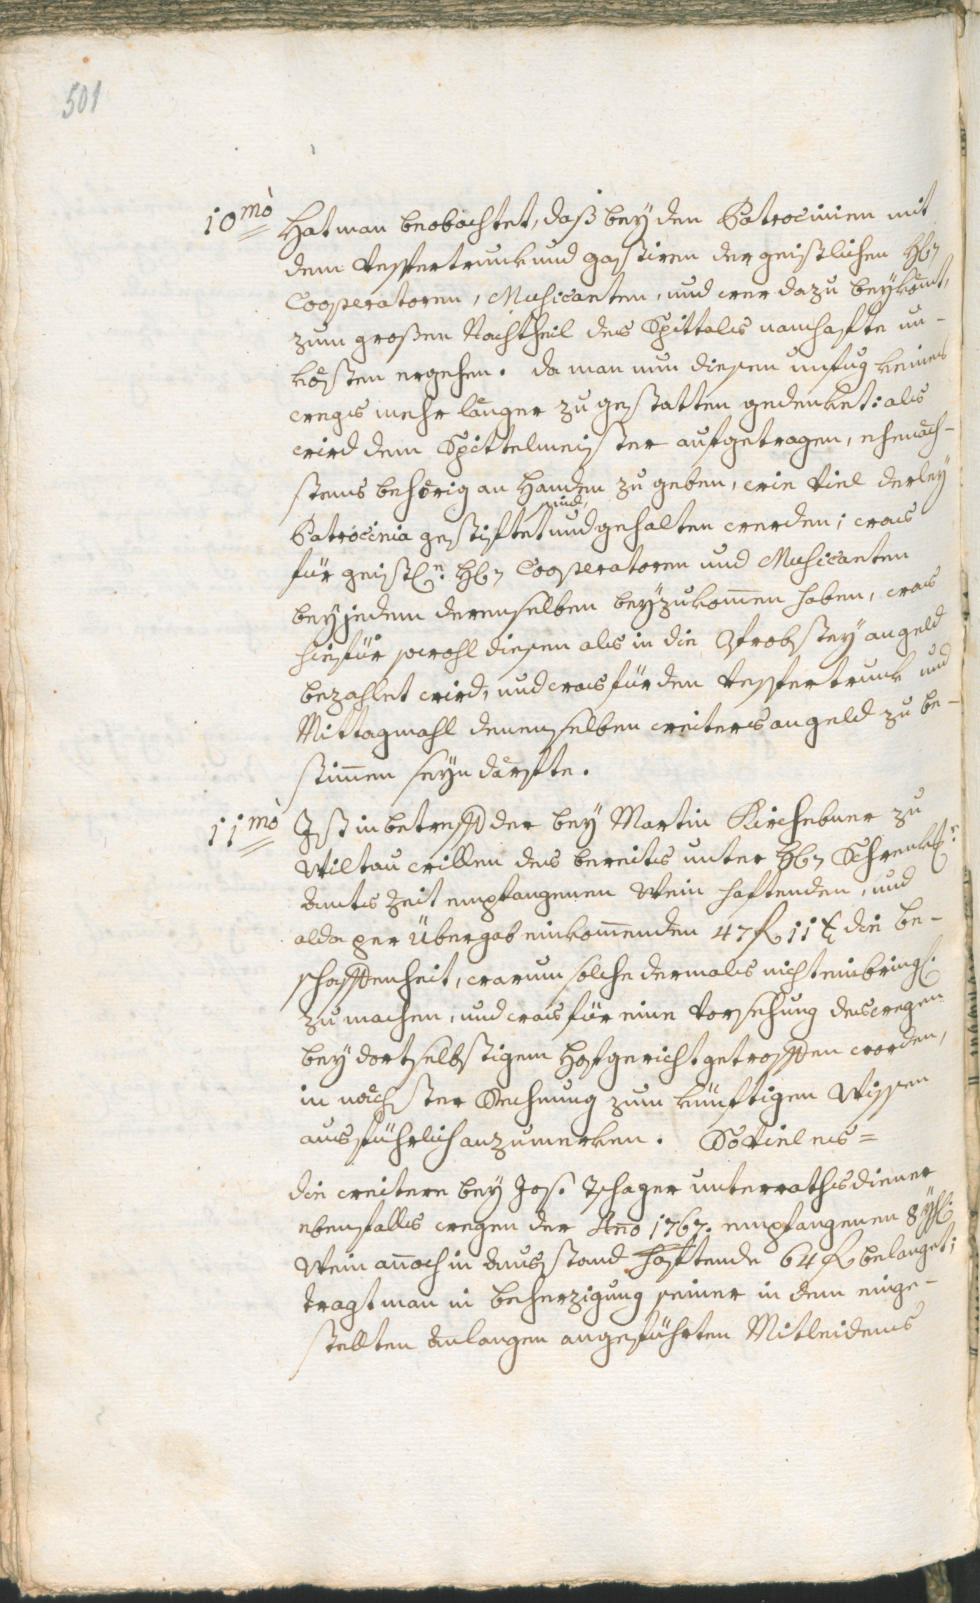 501
10mò Hat man beobachtet, daß bey den Patrocinien mit
dem Vespertrunk und gastiren der geistlichen Hh
Cooperatoren, Musicanten, und wer dazu beykomt,
zum großen Nachtheil des Spittals namhafte un-
kösten ergehen. da man nun diesen unfug keines
wegs mehr länger zu gestatten gedenket: als
wird dem Spittelmeister aufgetragen, ehenäch-
stens behörig an Handen zu geben, wie viel derley
sind,
Patrocinia gestiftet und gehalten werden; was
für geistln: Hh Cooperatoren und Musicanten
bey jedem derenselben beyzukommen haben, was
hiefür sowohl diesen als in die Probstey an geld
bezahlet wird, und was für den Vespertrunk und
Mittagmahl denenselben weiters an geld zu be-
stimmen seyn därfte.
11mò Ist in betreff der bey Martin Kirchebner zu
Wiltau willen des bereits unter Hh Schrenkh:
Amts Zeit empfangenen Wein haftenden, und
alda per Übergab einkommenden 47 f 11 x die be-
schaffenheit, warum solche dermals nicht einbringl:
zu machen, und was für eine Vorsehung deswegen
bey dortselbstigem Hofgericht getroffen worden,
in nächster Rechnung zum künftigen Wissen
ausführlich anzumerken. So viel es=
die weitere bey Jos: Tschager unterrathsdiener
ebenfalls wegen der Ano 1767. empfangenen 8 yh
Wein annoch in Ausstand haftende 64 f belanget;
tragt man in beherzigung seiner in dem einge-
stellten Anlangen angeführten Mitleidens